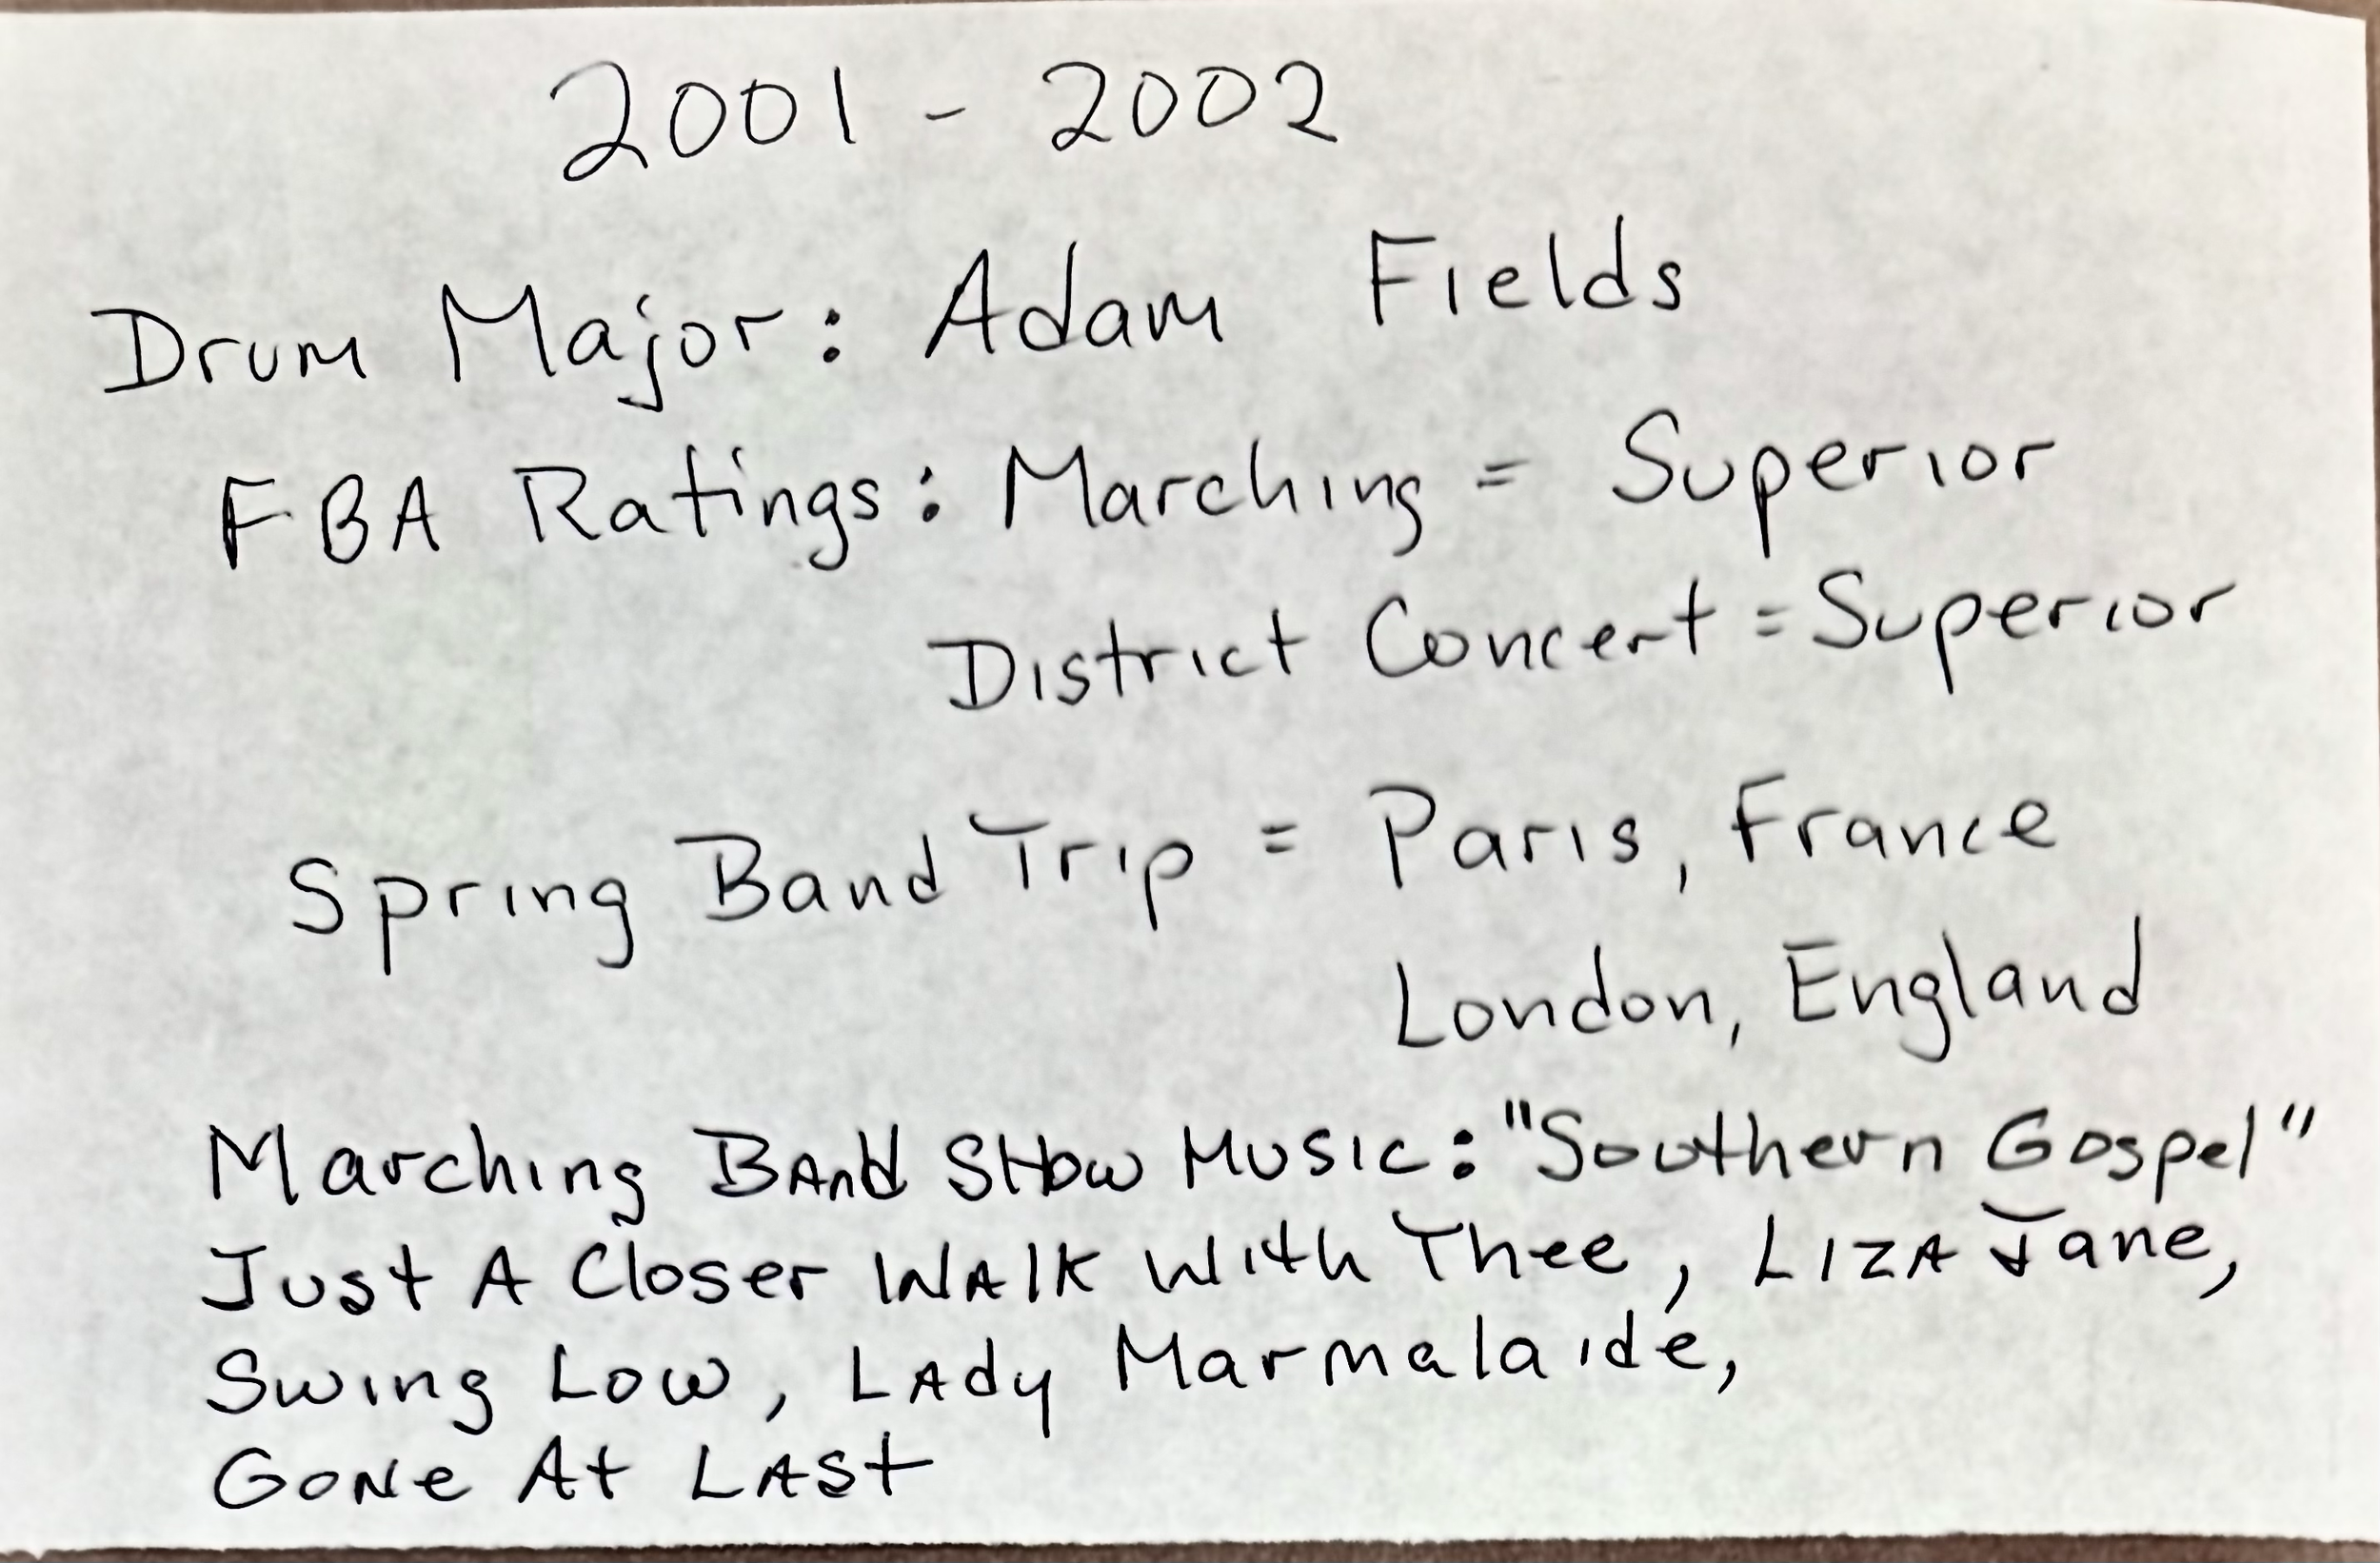 2001 - 2002
Drum Major: Adam Fields
FBA Ratings: Marching = Superior
District Concert = Superior
Spring Band Trip = Paris, France
London, England
Marching BAnd SHow Music: "Southern Gospel"
Just A Closer WAlk With Thee, LIZA Jane,
Swing Low, LAdy Marmalaide,
GoNe At LAst